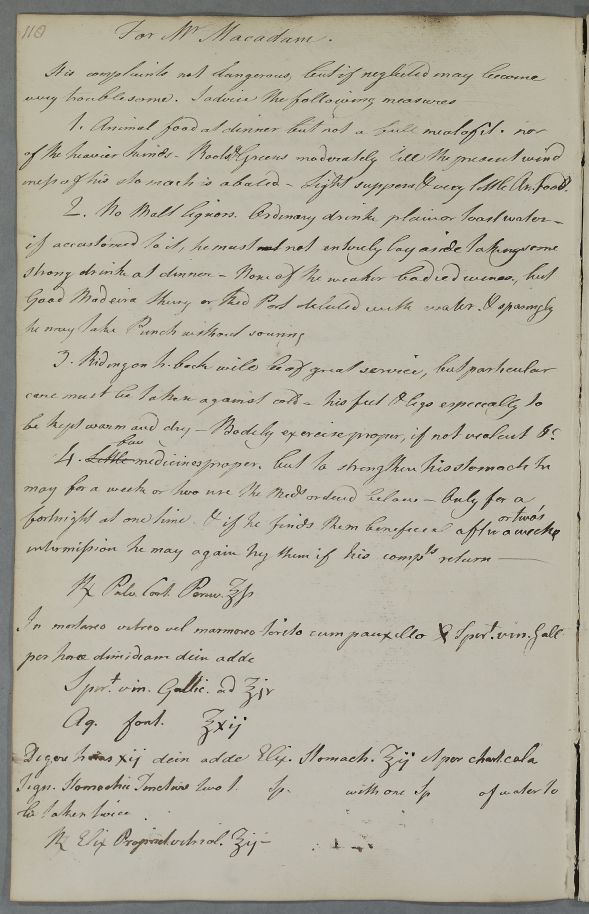 110
For Mr Macadam.
His complaints not dangerous, but if neglected may become
very troublesome. I advise the following measures
1. Animal food at dinner but not a full meal of it. nor
of the heavier kinds - Roots & Greens moderately till the present wind
iness of his stomach is abated - Light suppers & very little An. food.
2. No Malt liquors. Ordinary drink plain or toast water -
if accustomed to it, he must not entirely lay aside taking some
strong drink at dinner - None of the weaker bodied wines, but
Good Madeira Sherry or Red Port diluted with water. & sparingly
he may take Punch without souring
3. Riding on h. back will be of great service, but particular
care must be taken against cold - his feet & legs especially to
be kept warm and dry - Bodily exercise proper, if not violent &c.
4. Little few medicines proper. but to strengthen his stomach he
may for a week or two use the Meds ordered below - Only for a
fortnight at one time. & if he finds them beneficial after a week
or two's
intermission he may again try them if his compts return
℞ Pulv. Cort. Peruv. ℥ss
In mortareo vitreo vel marmoreo terito cum pauxillo Spirt. vin. Gall.
per horae dimidiam dein adde
Spirt. vin. Gallic. ad ℥iv
Aq. font. ℥xij
Digere horas xij dein adde Elix. Stomach. ℥ij et per chart. cola
Sign. Stomachic Tincture two t. sp. with one Sp of water to
be taken twice
℞ Elix Propriet. vitriol. ℥ij -